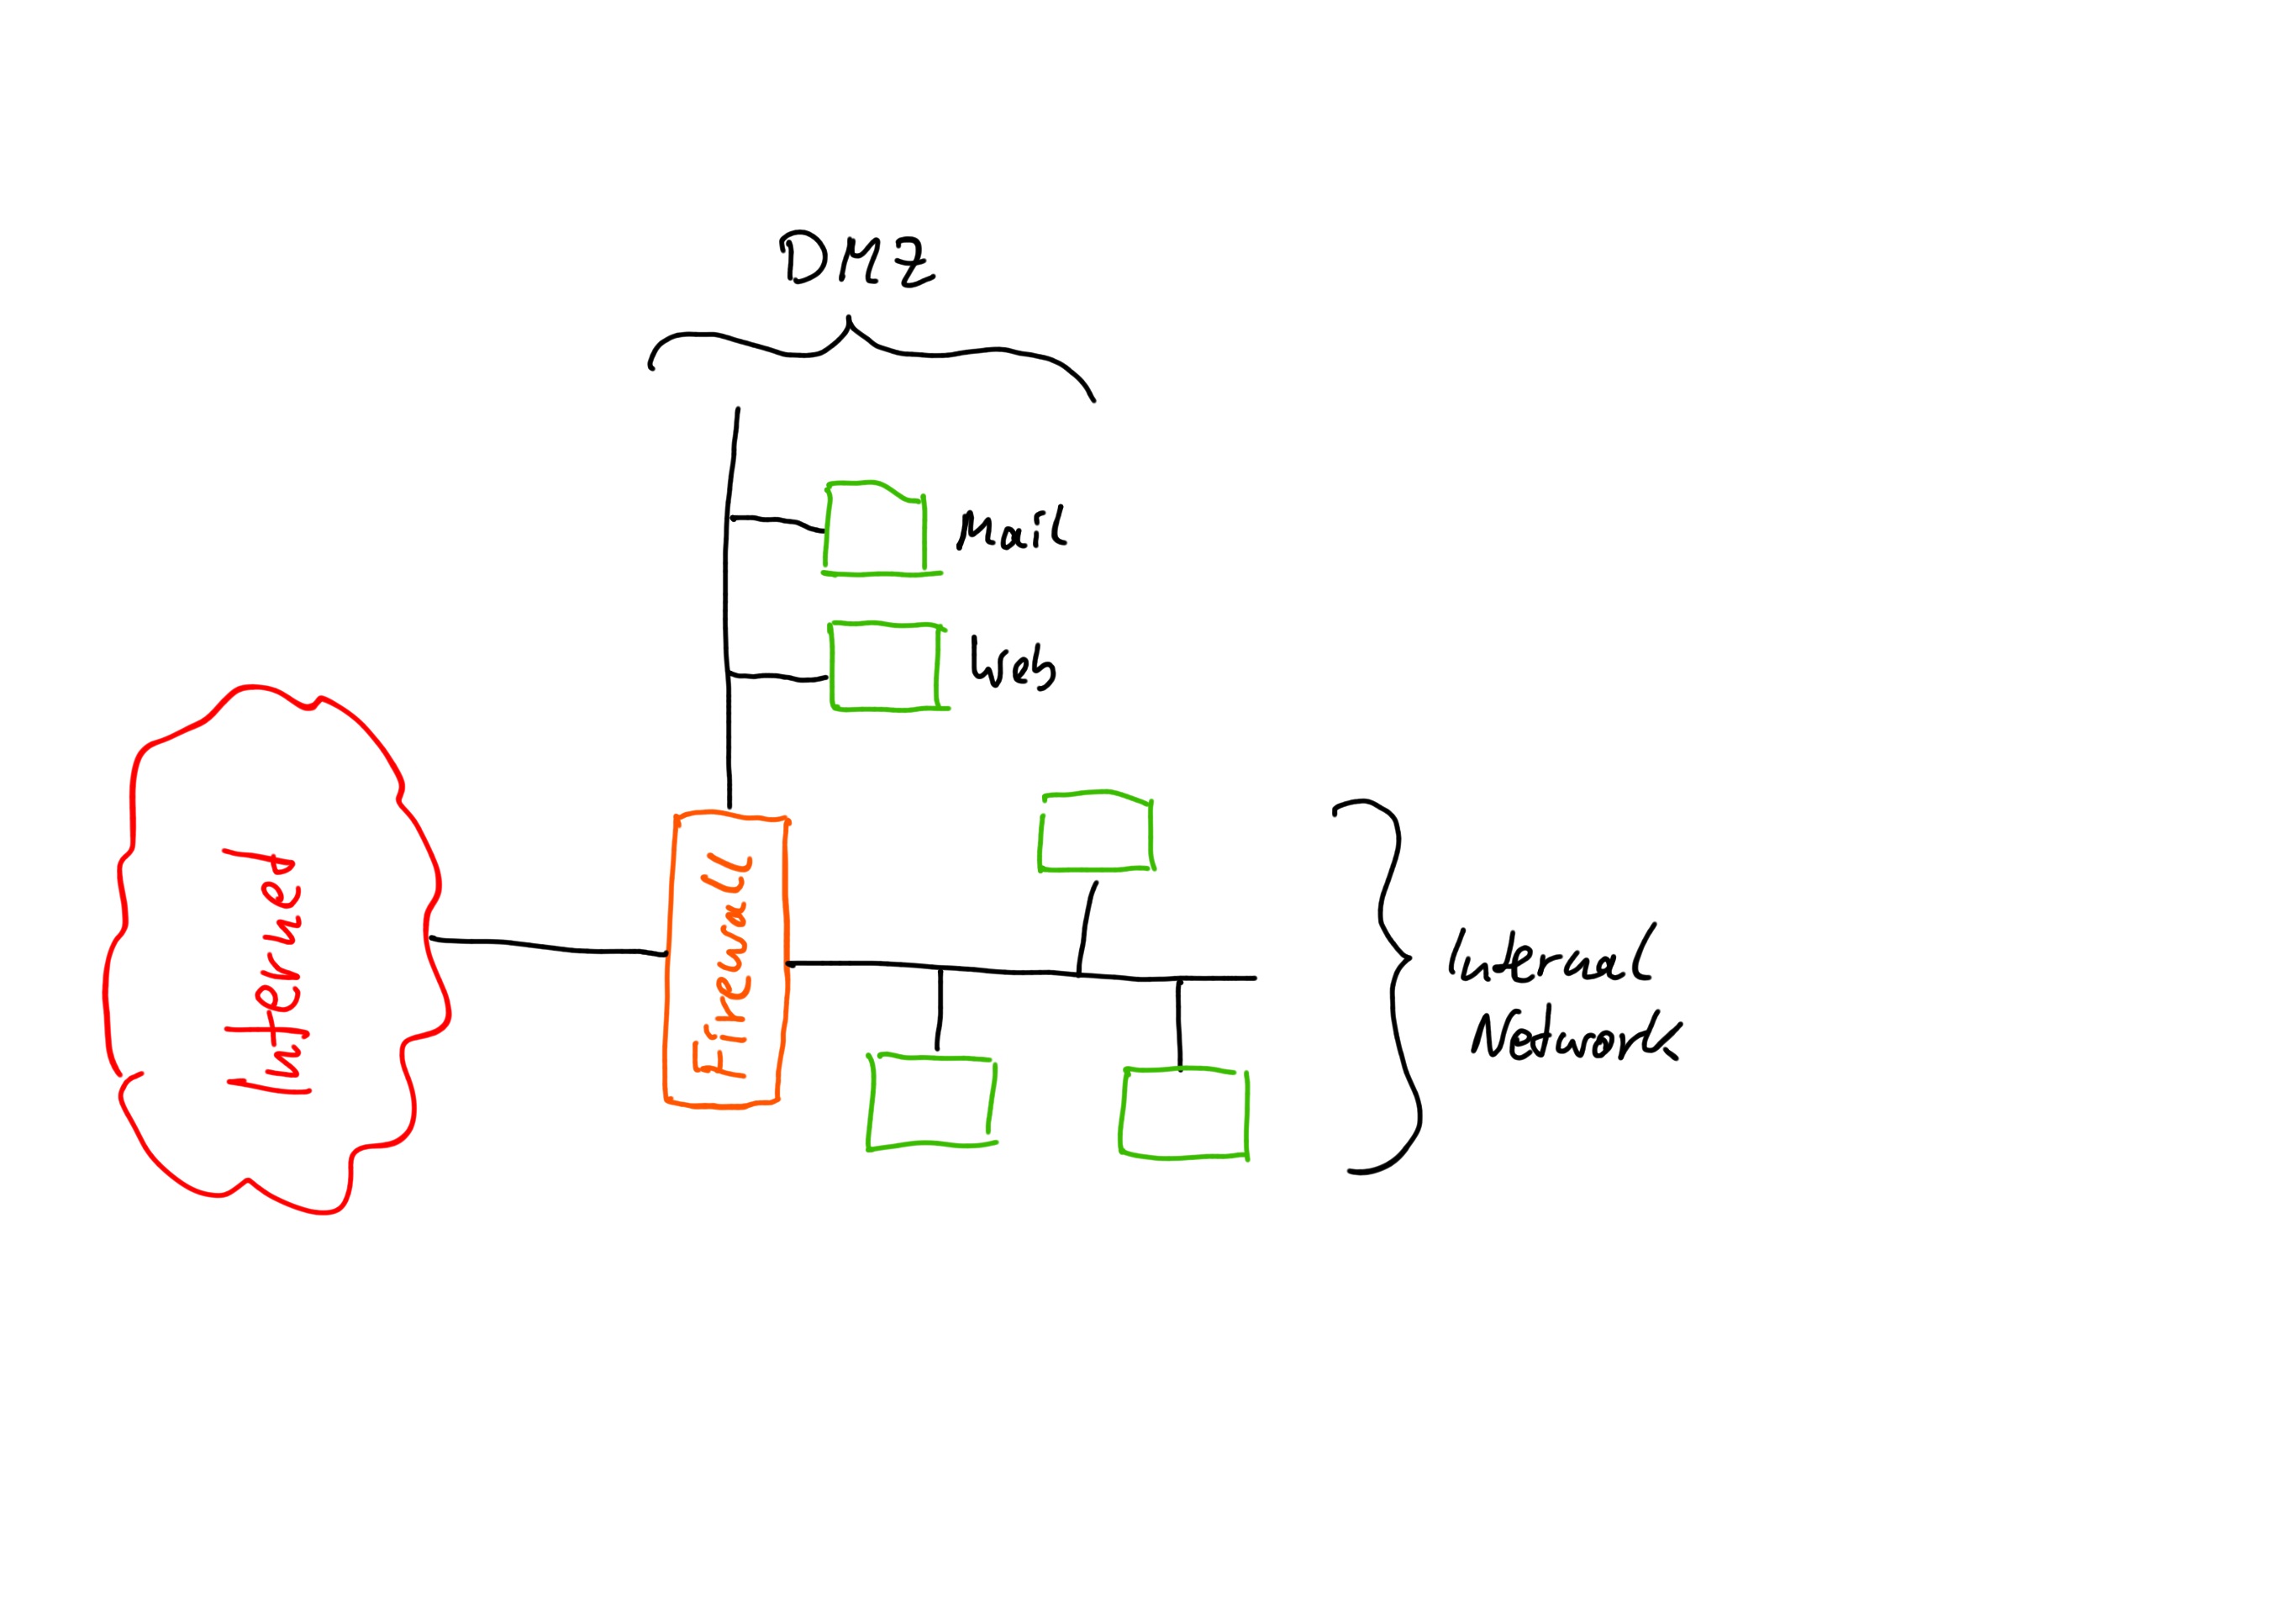 DMZ
Mail
Web
Internet
Firewall
Internal
Network